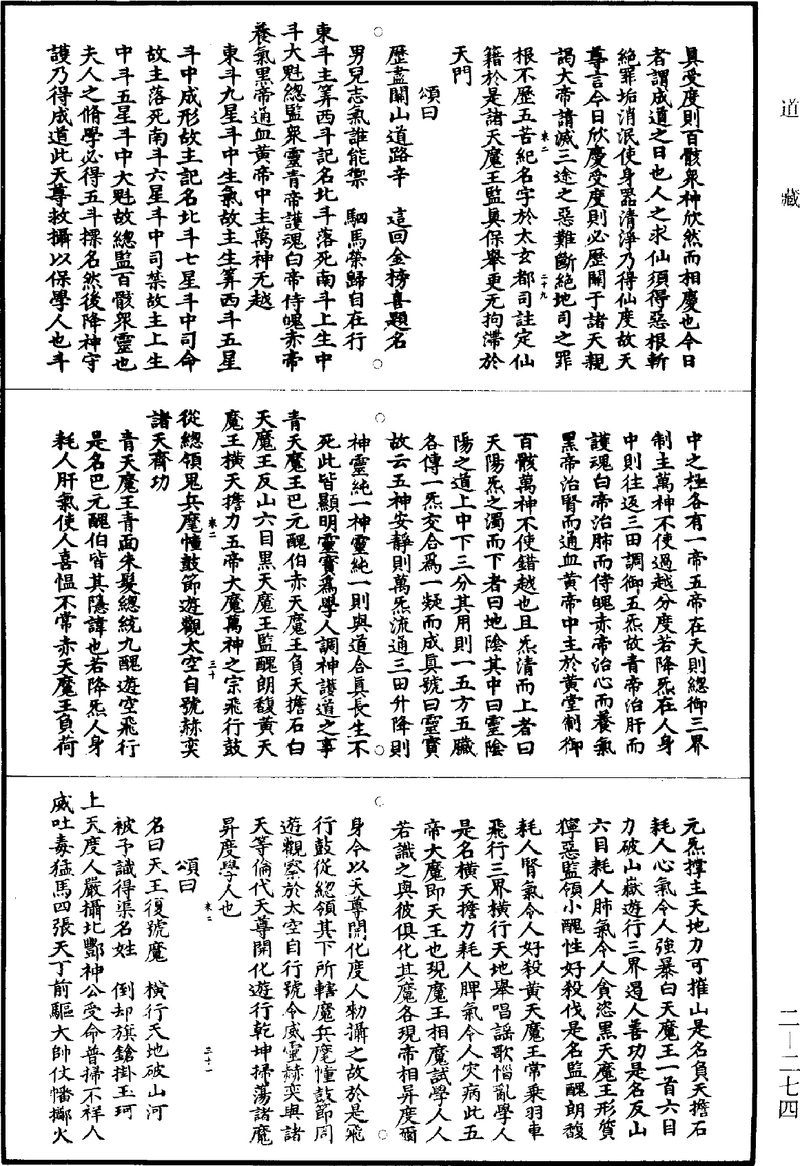 道藏
具受度則百骸衆神欣然而相慶也今日
者謂成道之日也人之求仙須得惡根斬
絕罪垢消泯使身器清淨乃得仙度故天
尊言今日欣慶受度則必歷關于諸天親
謁大帝請滅三途之惡難斷絕地司之罪
根不歷五苦紀名字於太玄都司註定仙
卷二 二十九
籍於是諸天魔王監真保舉更无拘滯於
天門
頌曰
歷盡關山道路辛 這回金榜喜題名
男兒志氣誰能禦 駟馬榮歸自在行
東斗主筭西斗記名北斗落死南斗上生中
斗大魁總監衆靈青帝護魂白帝侍魄赤帝
養氣黑帝通血黃帝中主萬神无越
東斗九星斗中生氣故主生筭西斗五星
斗中成形故主記名北斗七星斗中司命
故主落死南斗六星斗中司禁故主上生
中斗五星斗中大魁故總監百骸衆靈也
夫人之脩學必得五斗標名然後降神守
護乃得成道此天尊救攝以保學人也斗
中之極各有一帝五帝在天則總御三界
制主萬神不使過越分度若降炁在人身
中則往返三田調御五炁故青帝治肝而
護魂白帝治肺而侍魄赤帝治心而養氣
黑帝治腎而通血黃帝中主於黃堂制御
百骸萬神不使錯越也且炁清而上者曰
天陽炁之濁而下者曰地陰其中曰靈陰
陽之道上中下三分其用則一五方五臟
各傳一炁交合爲一凝而成真號曰靈寶
故云五神安靜則萬炁流通三田升降則
神靈純一神靈純一則與道合真長生不
死此皆顯明靈寶爲學人調神護道之事
青天魔王巴元醜伯赤天魔王負天擔石白
天魔王反山六目黑天魔王監醜朗馥黃天
魔王橫天擔力五帝大魔萬神之宗飛行鼓
卷二 三十
從總領鬼兵麾幢鼓節遊觀太空自號赫奕
諸天齊功
青天魔王青面朱髮總統九醜遊空飛行
是名巴元醜伯皆其隱諱也若降炁人身
耗人肝氣使人喜慍不常赤天魔王負荷
元炁撑主天地力可摧山是名負天擔石
耗人心氣令人強暴白天魔王一首六目
力破山嶽遊行三界遏人善功是名反山
六目耗人肺氣令人貪恣黑天魔王形質
獰惡監領小醜性好殺伐是名監醜朗馥
耗人腎氣令人好殺黃天魔王常乘羽車
飛行三界橫行天地舉唱謠歌惱亂學人
是名橫天擔力耗人脾氣令人灾病此五
帝大魔即天王也現魔王相魔試學人人
若識之與彼俱化其魔各現帝相昇度爾
身今以天尊開化度人勑攝之故於是飛
行鼓從總領其下所轄魔兵麾幢鼓節周
遊觀察於太空自行號令威靈赫奕與諸
天等倫代天尊開化遊行乾坤掃蕩諸魔
昇度學人也
卷二 三十一
頌曰
名曰天王復號魔 橫行天地破山河
被予識得渠名姓 倒却旗鎗掛玉珂
上天度人嚴攝北酆神公受命普掃不祥八
威吐毒猛馬四張天丁前驅大帥仗幡擲火
二—二七四